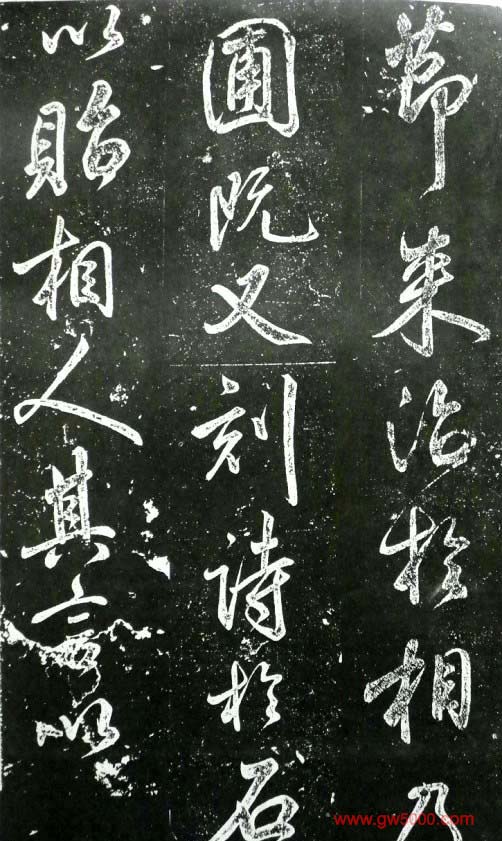 節来治於相乃
圃既又刻詩於石
以貽相人其言以
www.gw5000.com